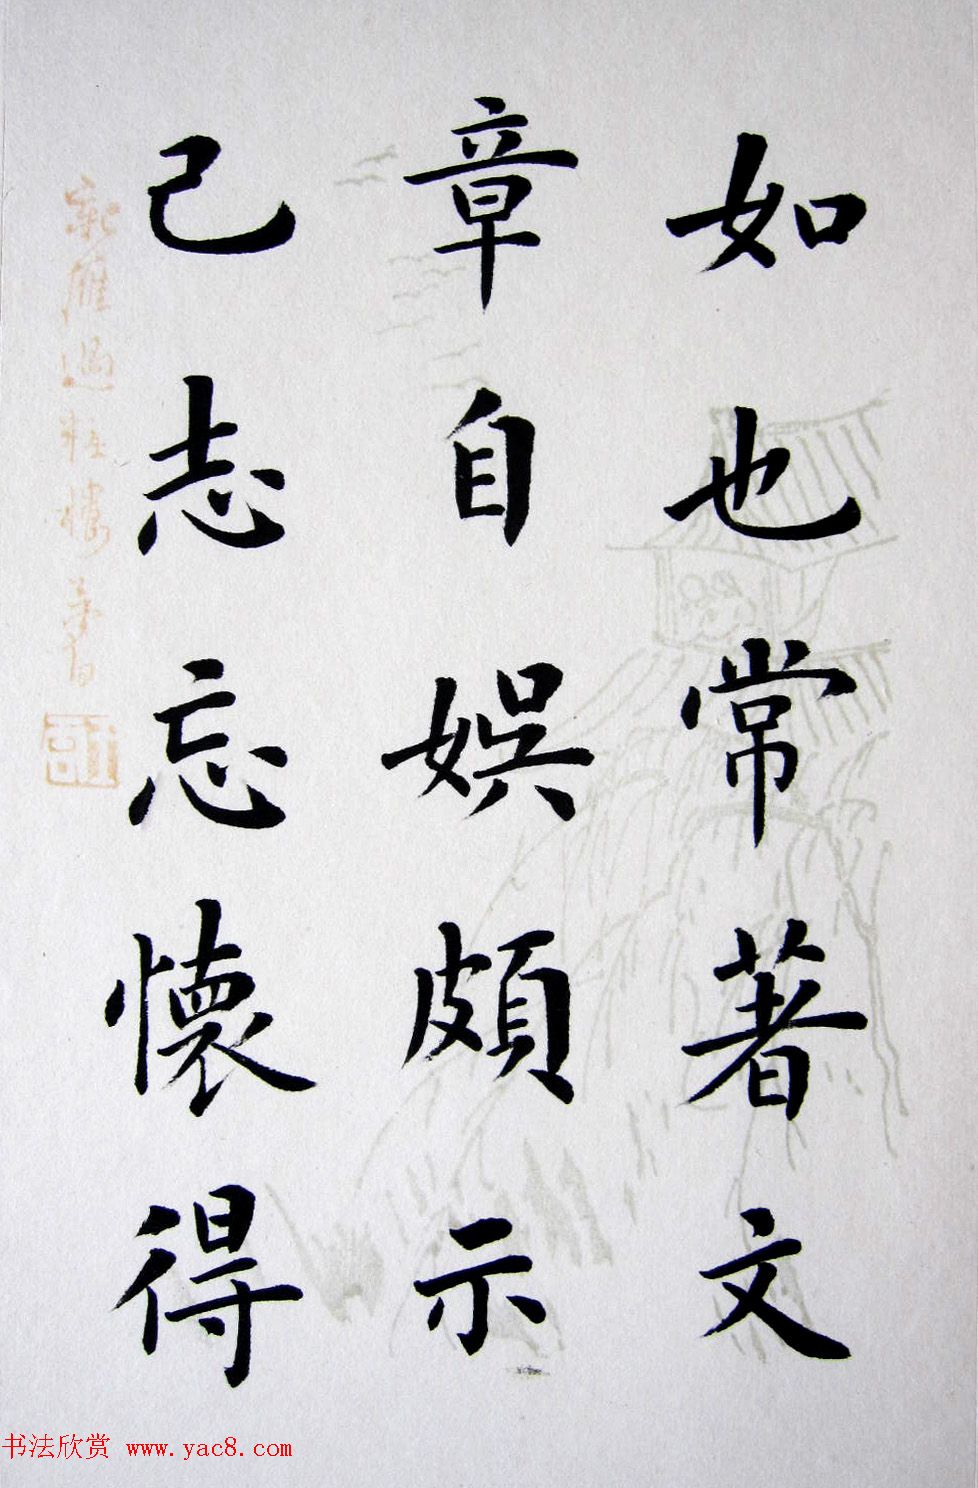 如也常著文
章自娛頗示
己志忘懷得
書法欣赏 www.yac8.com